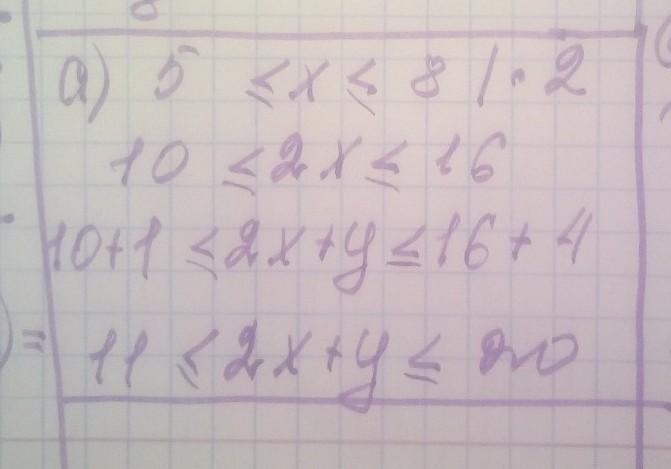 а) 5 ≤ x ≤ 8 | · 2
10 ≤ 2x ≤ 16
10+1 ≤ 2x+y ≤ 16+4
)= 11 ≤ 2x+y ≤ 20